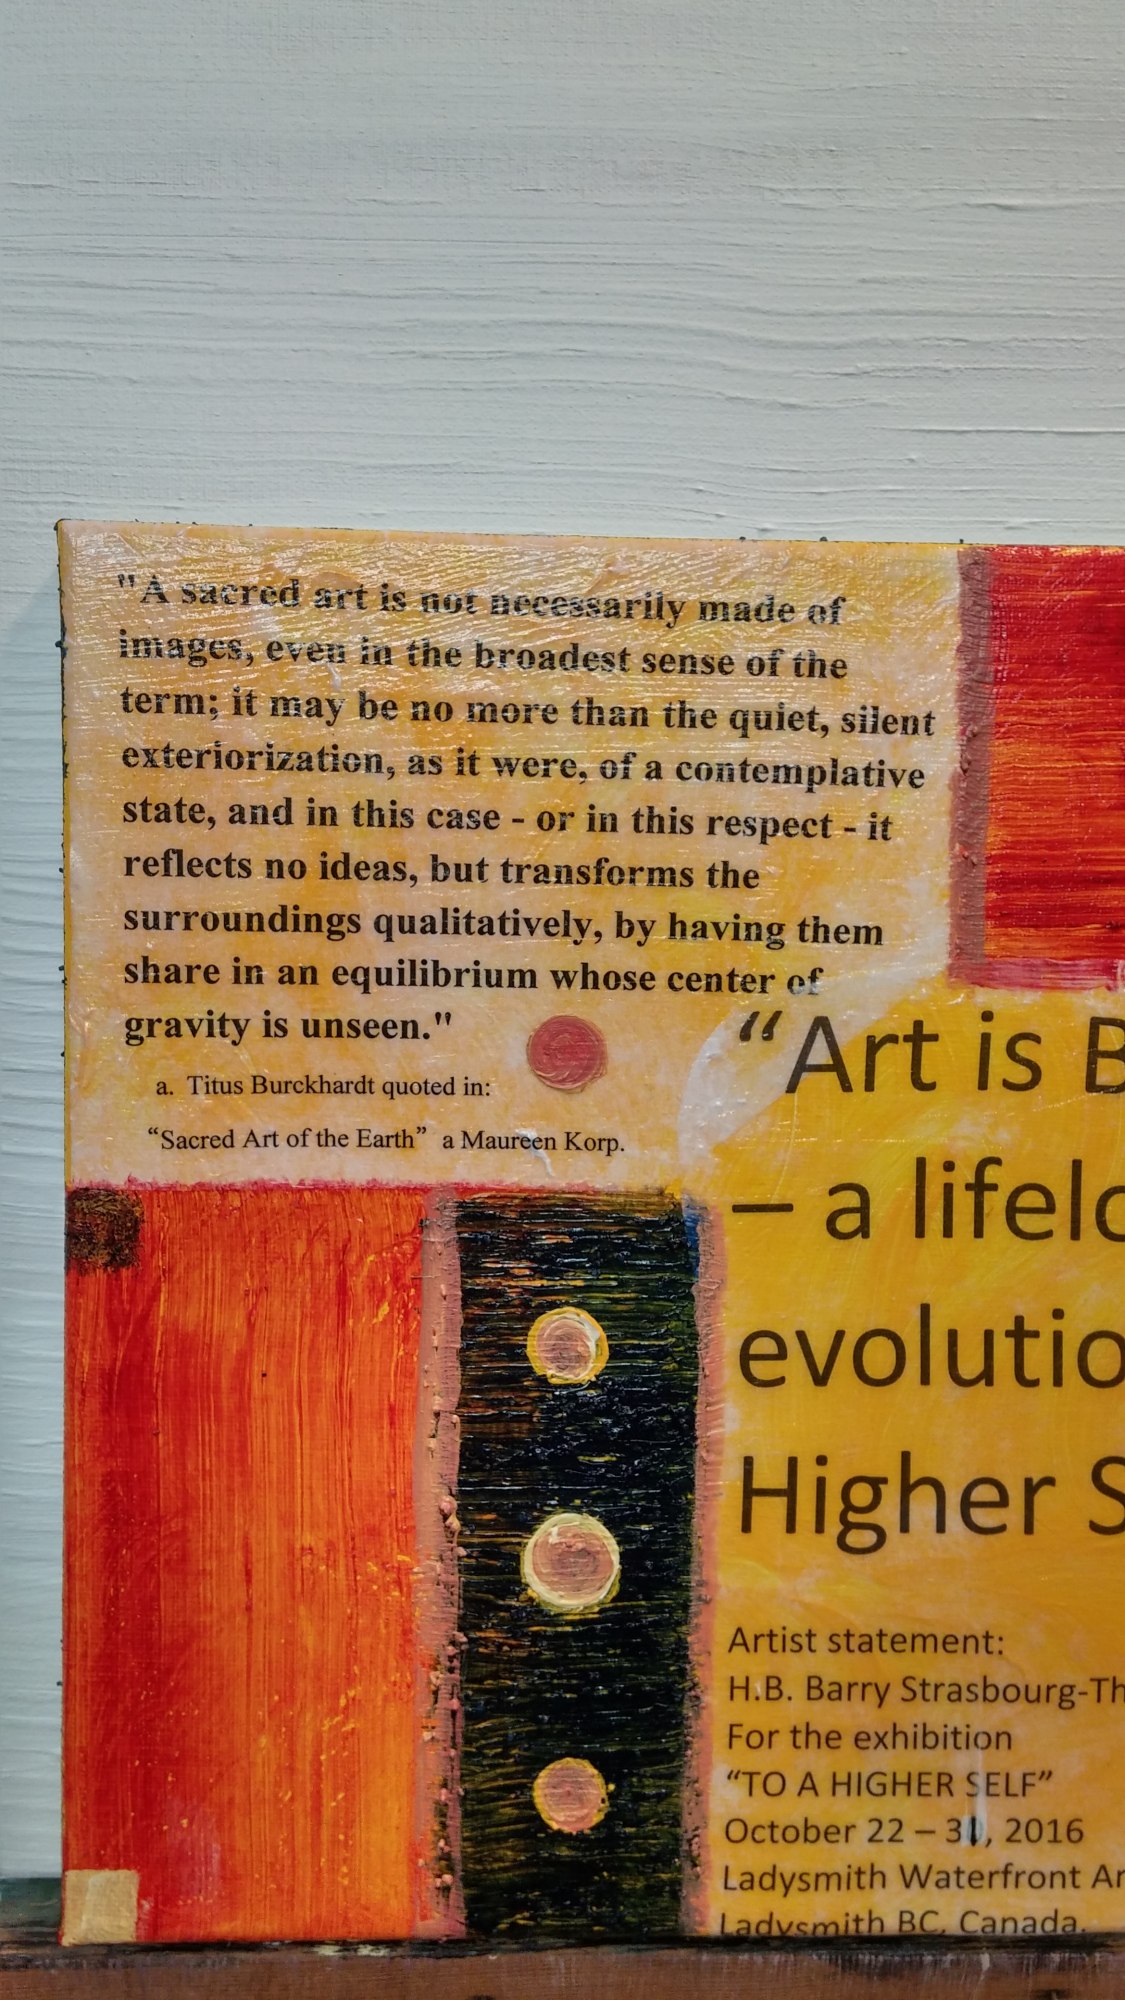 "A sacred art is not necessarily made of
images, even in the broadest sense of the
term; it may be no more than the quiet, silent
exteriorization, as it were, of a contemplative
state, and in this case - or in this respect - it
reflects no ideas, but transforms the
surroundings qualitatively, by having them
share in an equilibrium whose center of
gravity is unseen."
a. Titus Burckhardt quoted in:
“Sacred Art of the Earth” a Maureen Korp.
“Art is
– a
Higher
Artist statement:
H.B. Barry
For the exhibition
“TO A HIGHER SELF”
October 22 – 31, 2016
Ladysmith Waterfront
Ladysmith BC, Canada.